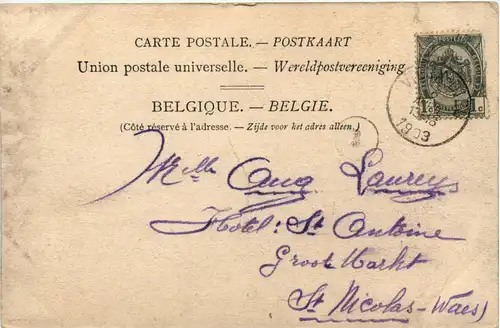 CARTE POSTALE. — POSTKAART
Union postale universelle. — Wereldpostvereeniging
BELGIQUE. — BELGIE.
(Côté réservé à l'adresse. — Zijde voor het adres alleen.)
1c 1c
1903
Melle Aug Laureys
Hôtel: St Antoine
Groote Markt
St Nicolas-(Waes)